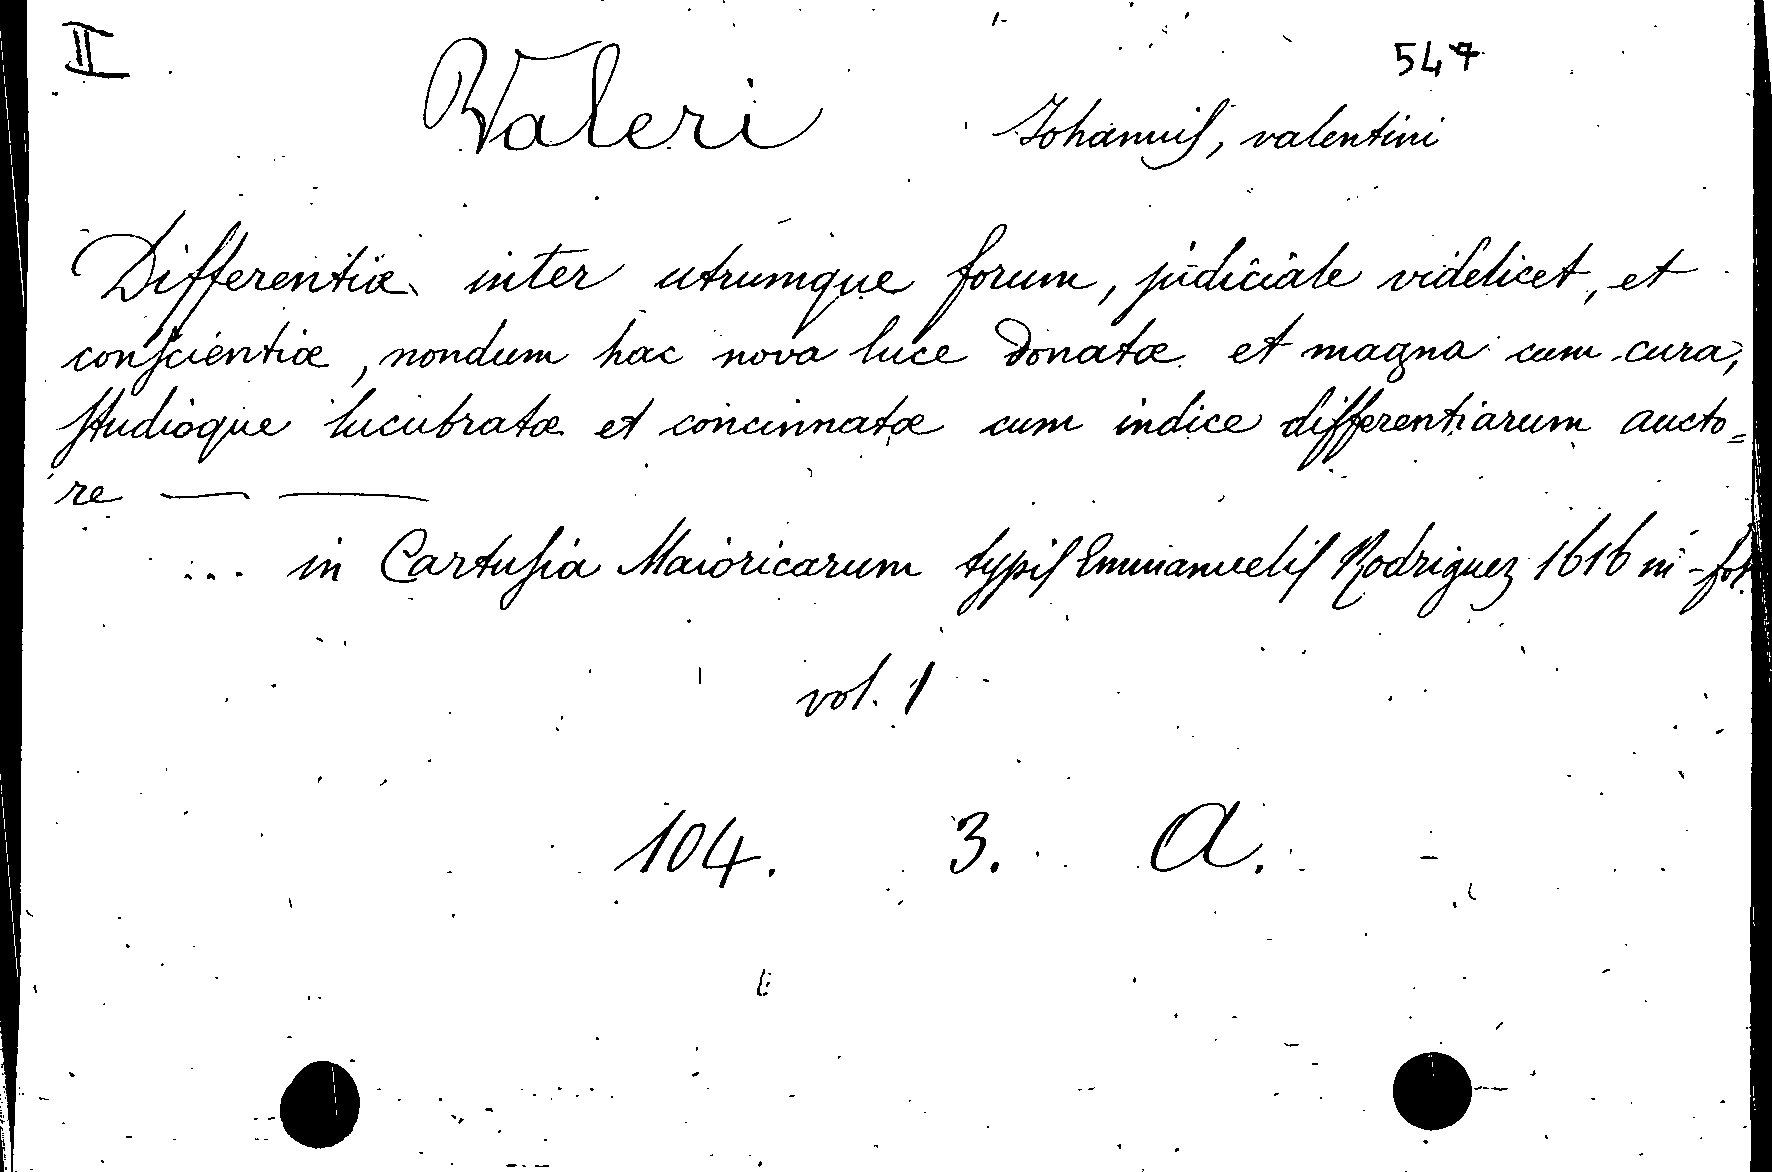 II 547
Valeri Johannis, valentini
Differentiæ inter utrumque forum, judiciale videlicet, et
conſcientiæ, nondum hac nova luce donatæ et magna cum cura,
ſtudioque lucubratæ et concinnatæ cum indice differentiarum aucto=
re — —
... in Cartuſia Maioricarum typiſ Emmanueliſ Rodriguez 1616 in-fol.
vol. 1
104. 3. A.